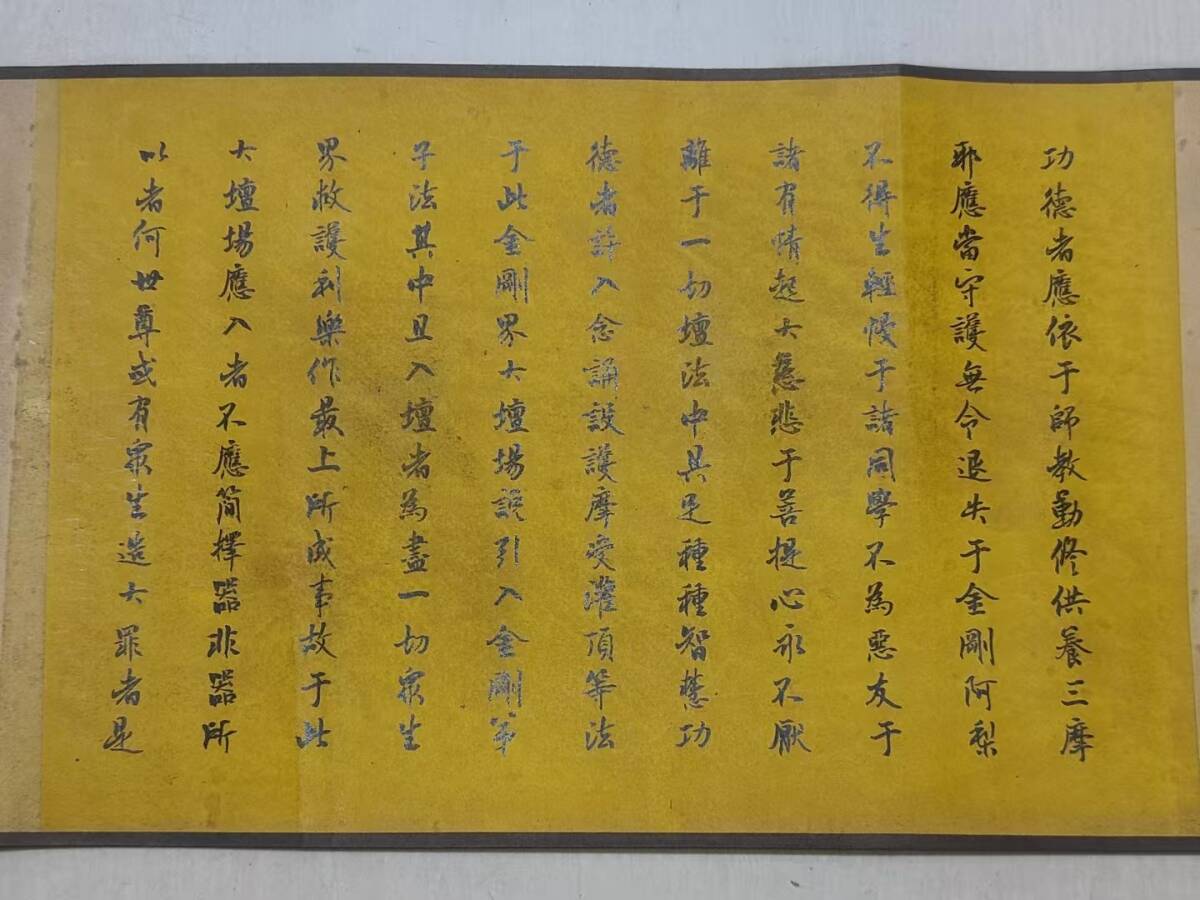 功德者應依于師教勤修供養三摩
耶應當守護無令退失于金剛阿梨
不得生輕慢于諸同學不為惡友于
諸有情起大慈悲于菩提心永不厭
離于一切壇法中具足種種智慧功
德者許入念誦設護摩受灌頂等法
于此金剛界大壇場說引入金剛弟
子法其中且入壇者為盡一切眾生
界救護利樂作最上所成事故于此
大壇場應入者不應簡擇器非器所
以者何世尊或有眾生造大罪者是